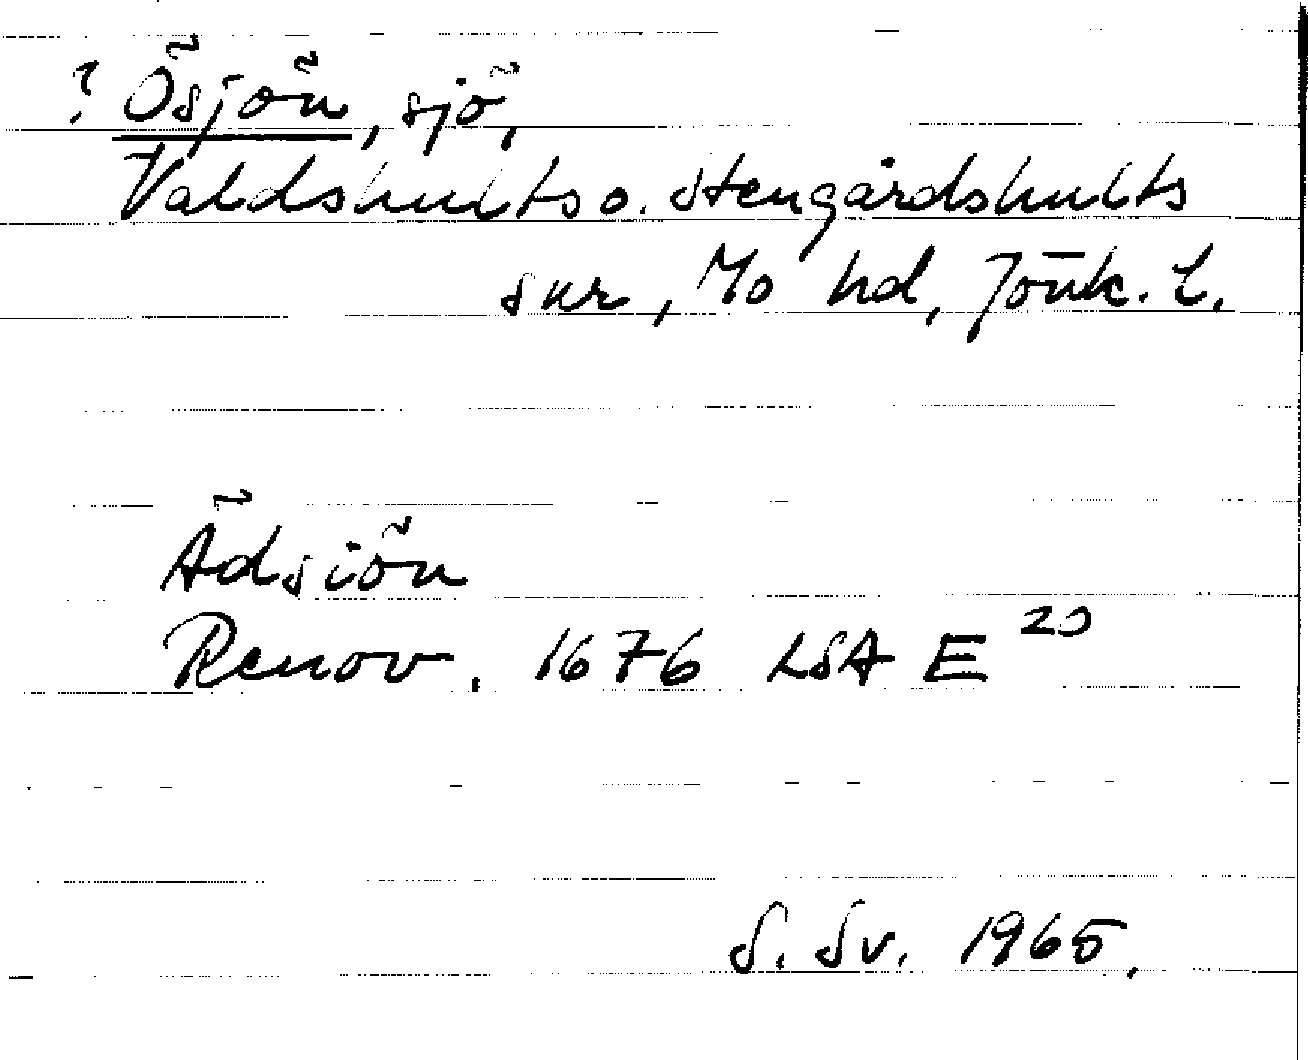 ? Ösjön, sjö,
Valdshults o. Stengårdshults
snr, Mo hd, Jönk. L.
Ädsiön
Renov. 1676 LSA E 20
S. Sv. 1965.